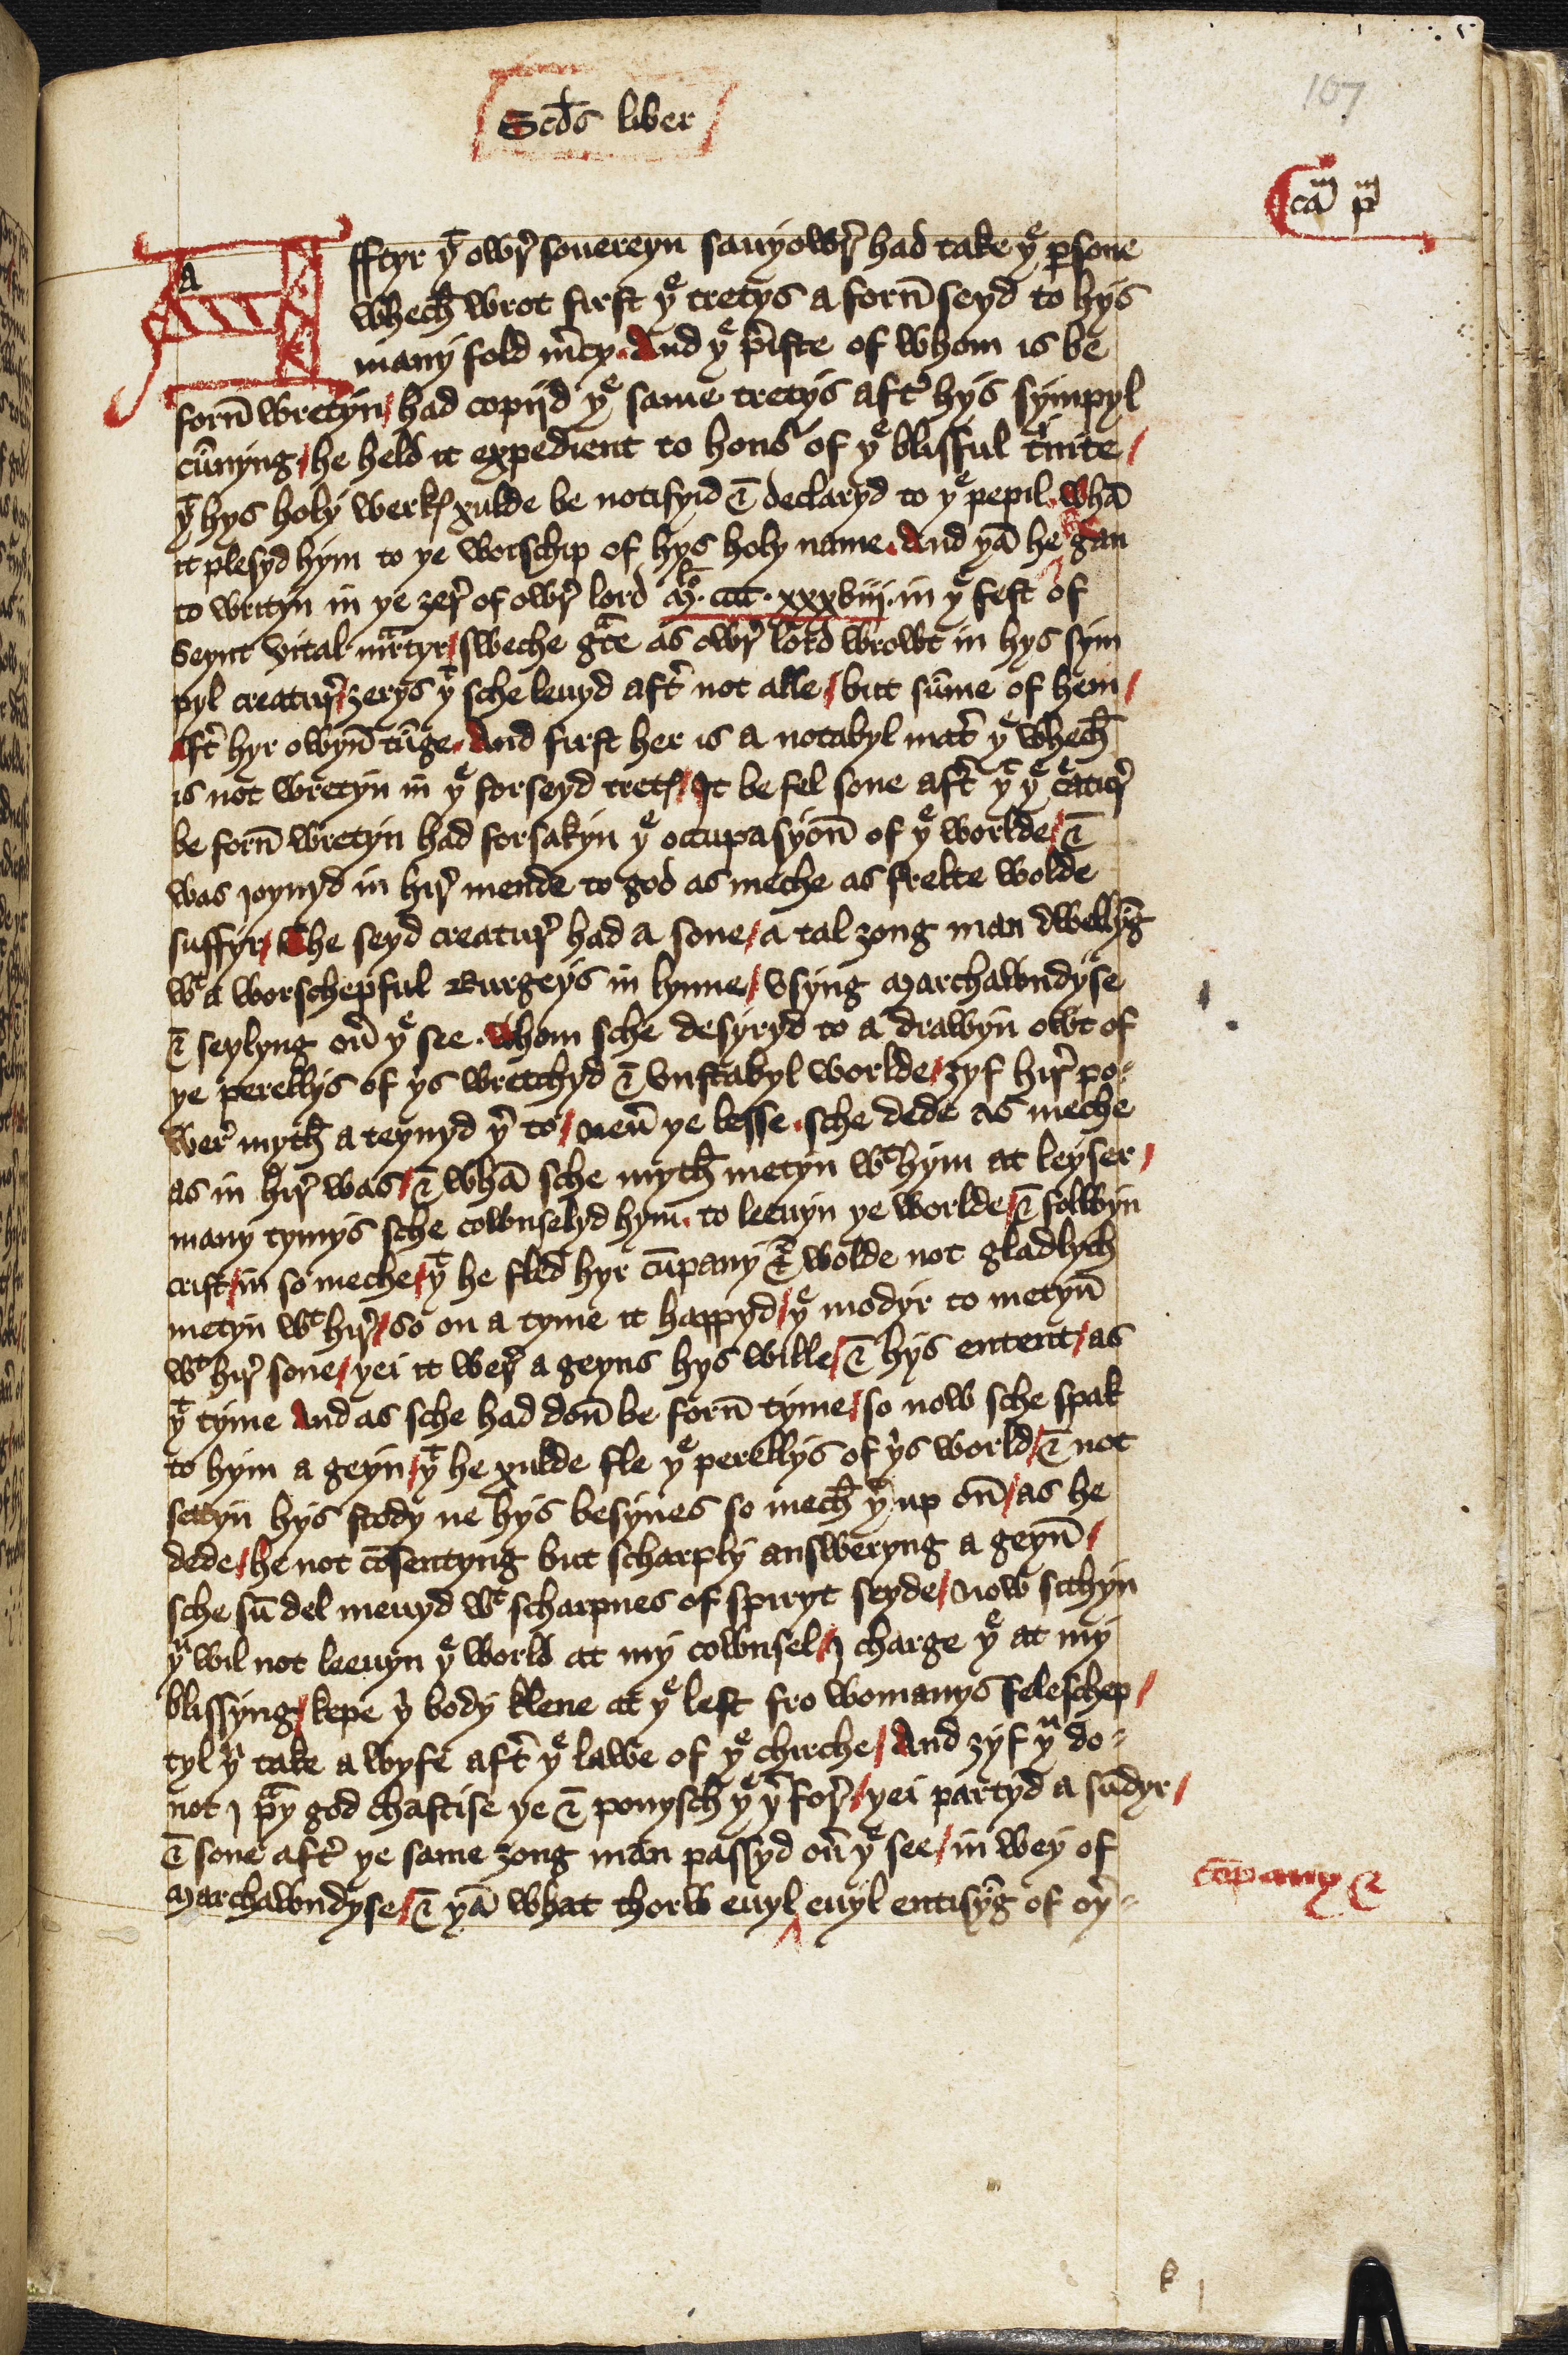 Scds liber
107
cam pm
Afftyr yt owr souereyn sauyowr had take ye persone
whech wrot first ye tretys a forn seyd to hys
many fold mercy. And ye priste of whom is be
forn wretyn / had copijd ye same tretys aftr hys sympyl
cūnyng / he held it expedient to honr of ye blisful trinite /
yt hys holy werkys xulde be notifyid & declaryd to ye pepil. whā
it plesyd hym to ye worschip of hys holy name. And yā he gan
to writyn in ye ȝer of owr lord Mo. cccc. xxxviij. in ye fest of
Seynt Vital martyr / sweche grace as owr lord wrowt in hys sym
pyl creatur / ȝerys yt sche leuyd aftr not alle / but sūme of hem /
aftr hyr owyn tūge. And first her is a notabyl matr ye whech
is not wretyn in ye forseyd tretys / It be fel sone aftr yt ye creatur
be forn wretyn had forsakyn ye occupasyon of ye worlde / &
was joynyd in hir mende to god as meche as frelte wolde
suffyr / The seyd creatur had a sone / a tal ȝong man dwellyng
wt a worschepful Burgeys in lynne / vsyng marchawndyse
& seylyng ouyr ye see. whom sche desyryd to a drawyn owt of
ye perellys of ys wretchyd & vnstabyl worlde / ȝyf hir po-
wer myth a teynyd yer to / neuyr ye lesse. sche dede as meche
as in hir was / & whā sche myth metyn wt hym at leyser /
many tymys sche cownselyd hym. to leeuyn ye worlde / & folwyn
crist / in so meche / yt he fled hyr cūpany & wolde not gladlych
metyn wt hir / So on a tyme it happyd / ye modyr to metyn
wt hir sone / yei it wer a geyns hys wille / & hys entent / as
yt tyme And as sche had don be forn tyme / so now sche spak
to hym a geyn / yt he xulde fle ye perellys of ys world / & not
settyn hys stody ne hys besynes so mech yer up on / as he
dede / he not cōsentyng but scharply answeryng a geyn /
sche sū del meuyd wt scharpnes of spiryt seyde / Now sithyn
yu wil not leeuyn ye world at my cownsel / I charge ye at my
blissyng / kepe yi body klene at ye lest fro womanys feleschep /
tyl yu take a wyfe aftr ye lawe of ye chirche / And ȝyf yu do-
not I pray god chastise ye & ponysch ye yer for / yei partyd a sūdyr /
& sone aftr ye same ȝong man passyd ouyr ye see / in wey of
marchawndyse / & yā what thorw euyl euyl entisyng of oyr-
cūpany &